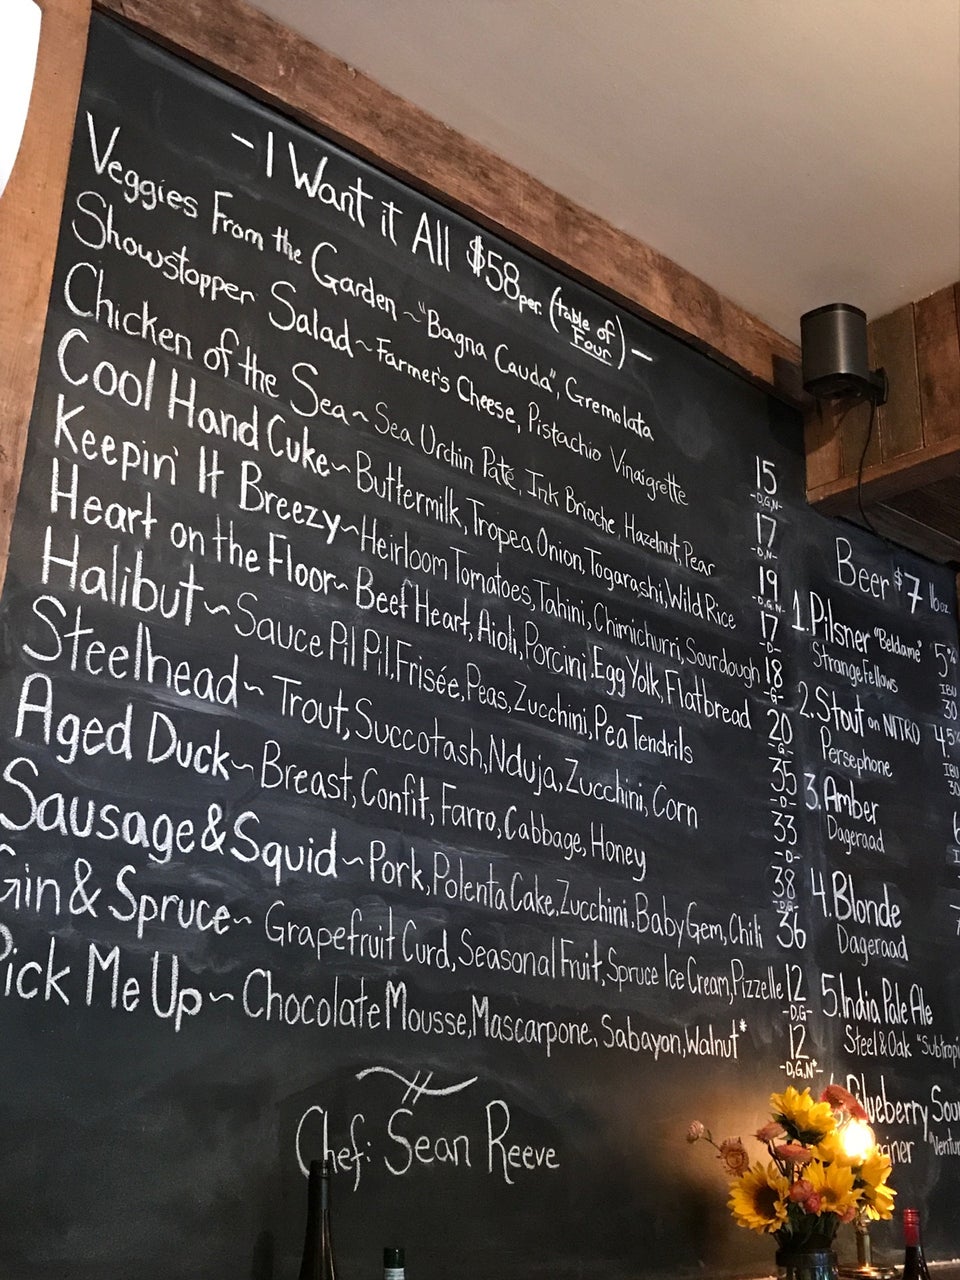 - I Want it All $58 per. (table of Four) -
Veggies From the Garden ~ "Bagna Cauda", Gremolata 15
-D,G,N-
Showstopper Salad ~ Farmer's Cheese, Pistachio Vinaigrette 17
-D,N-
Chicken of the Sea ~ Sea Urchin Paté, Ink Brioche, Hazelnut, Pear 19
-D,G,N-
Cool Hand Cuke ~ Buttermilk, Tropea Onion, Togarashi, Wild Rice 17
-D-
Keepin' It Breezy ~ Heirloom Tomatoes, Tahini, Chimichurri, Sourdough 18
-G-
Heart on the Floor ~ Beef Heart, Aioli, Porcini, Egg Yolk, Flatbread 20
-G-
Halibut ~ Sauce Pil Pil, Frisée, Peas, Zucchini, Pea Tendrils 35
-D-
Steelhead ~ Trout, Succotash, Nduja, Zucchini, Corn 33
-D-
Aged Duck ~ Breast, Confit, Farro, Cabbage, Honey 38
-D,G-
Sausage & Squid ~ Pork, Polenta Cake, Zucchini, Baby Gem, Chili 36
Gin & Spruce ~ Grapefruit Curd, Seasonal Fruit, Spruce Ice Cream, Pizzelle 12
-D,G-
Pick Me Up ~ Chocolate Mousse, Mascarpone, Sabayon, Walnut* 12
-D,G,N*-
Chef: Sean Reeve
Beer $7 16oz.
1. Pilsner "Beldame" 5%
Strange Fellows IBU 30
2. Stout on NITRO 4.5%
Persephone IBU 30
3. Amber
Dageraad
4. Blonde
Dageraad
5. India Pale Ale
Steel & Oak "Subtropi
Blueberry Sou